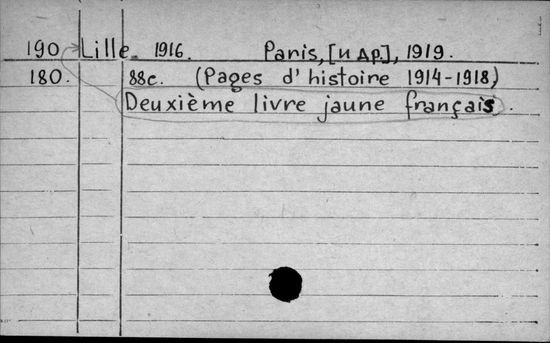 190 Lille 1916. Paris, [и др.], 1919.
180. 88с. (Pages d'histoire 1914-1918)
Deuxième livre jaune français.